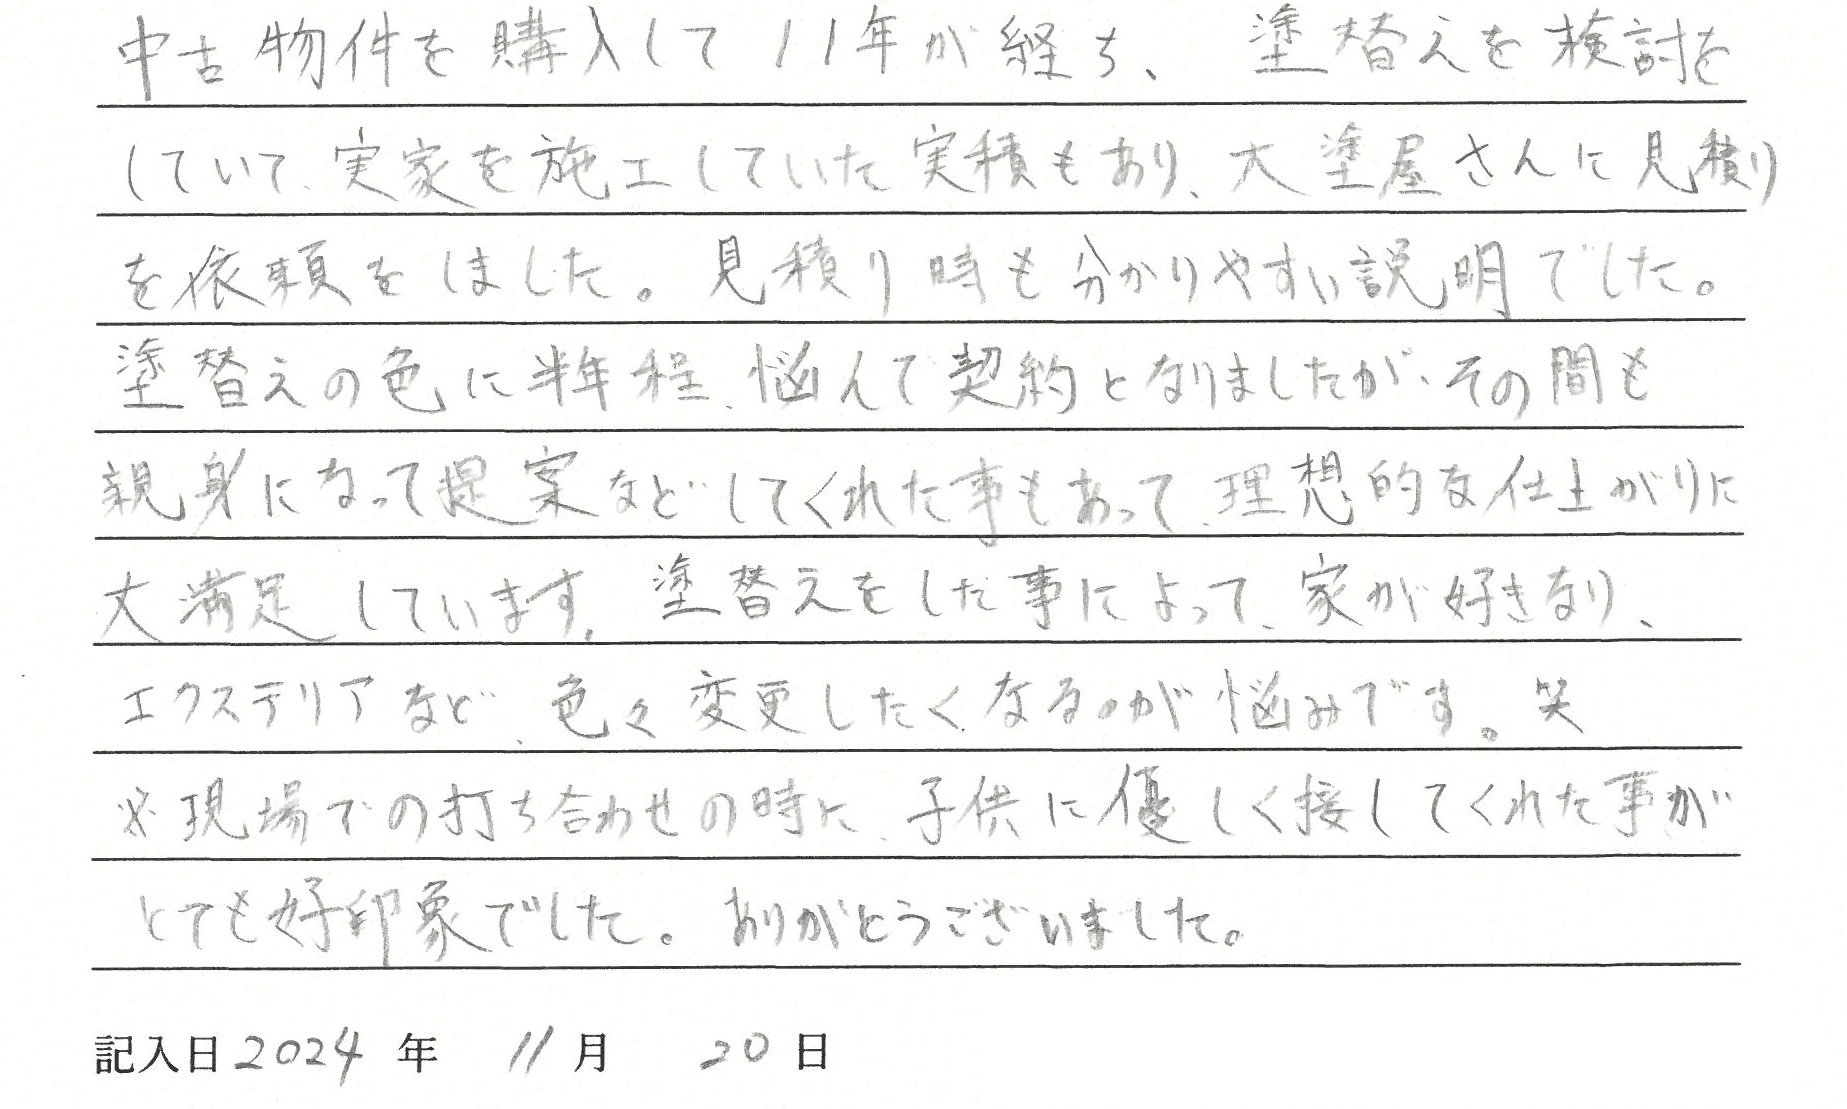 中古物件を購入して11年が経ち、塗替えを検討を
していて、実家を施工していた実積もあり、大塗屋さんに見積り
を依頼をしました。見積り時も分かりやすい説明でした。
塗替えの色に半年程、悩んで契約となりましたが、その間も
親身になって提案などしてくれた事もあって、理想的な仕上がりに
大満足しています。塗替えをした事によって、家が好きなり、
エクステリアなど、色々変更したくなるのが悩みです。笑
※現場での打ち合わせの時に、子供に優しく接してくれた事が
とても好印象でした。ありがとうございました。
記入日2024年 11月 20日